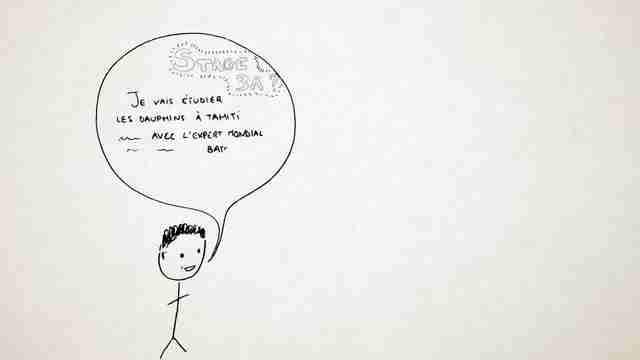 STAGE
3A ?
JE VAIS ÉTUDIER
LES DAUPHINS À TAHITI
AVEC L'EXPERT MONDIAL